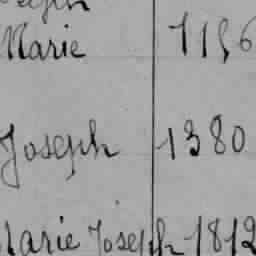 Joseph
Marie 1156
Joseph 1380
Marie Joseph 1812